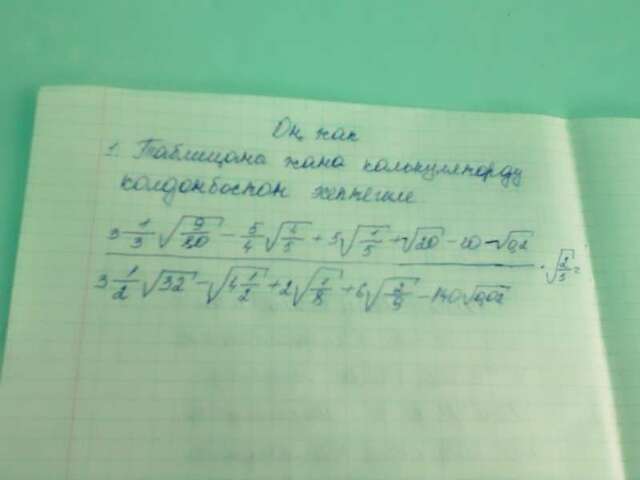 Оң жак
1. Таблицана жана калькуляторду
колдонбостон эептегиле
3 1/3 √(9/80) - 5/4 √(4/5) + 5√(1/5) + √20 - 10 √0,2
3 1/2 √32 - √(4 1/2) + 2√(1/8) + 6√(2/9) - 140√0,02 · √(2/5) =